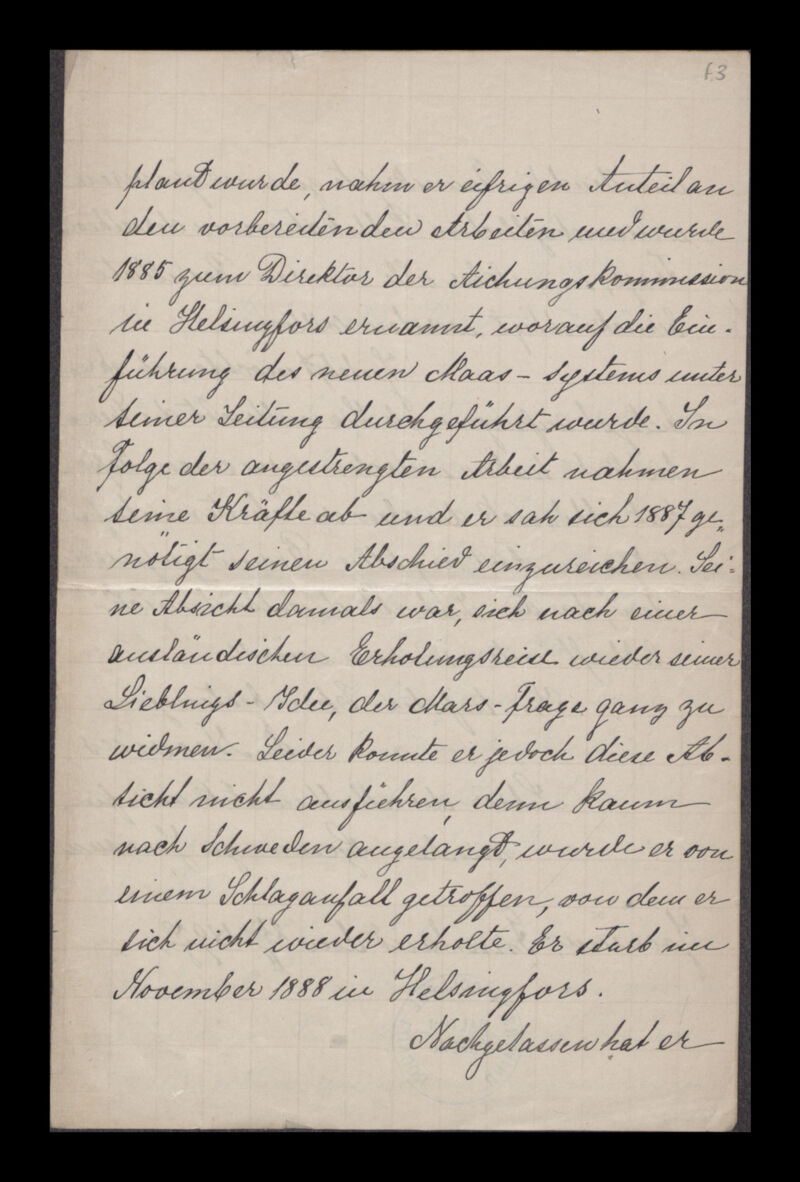 f.3
plant wurde, nahm er eifrigen Anteil an
den vorbereitenden Arbeiten und wurde
1885 zum Direktor der Aichungskommission
in Helsingfors ernannt, worauf die Ein-
führung des neuen Maas-Systems unter
seiner Leitung durchgeführt wurde. In
Folge der angestrengten Arbeit nahmen
seine Kräfte ab und er sah sich 1887 ge„
nötigt seinen Abschied einzureichen. Sei=
ne Absicht damals war, sich nach einer
ausländischen Erholungsreise wieder seiner
Lieblings-Idee, der Mars-Frage ganz zu
widmen. Leider konnte er jedoch diese Ab-
sicht nicht ausführen, denn kaum
nach Schweden angelangt, wurde er von
einem Schlaganfall getroffen, von dem er
sich nicht wieder erholte. Er starb im
November 1888 in Helsingfors.
Nachgelassen hat er